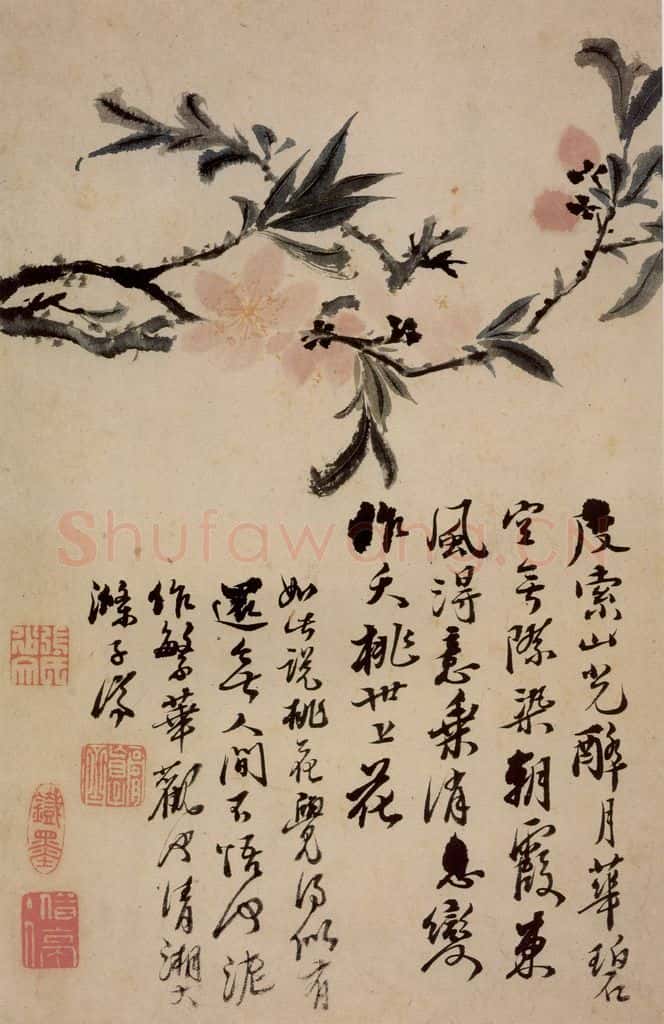 度索山光醉月華碧
空無際染朝霞東
風得意乘消息變
作夭桃世上花
如此說桃花覺得似有
還無人間不悟何泥
作繁華觀何清湘大
滌子濟
鐵墨
Shufawang.CN